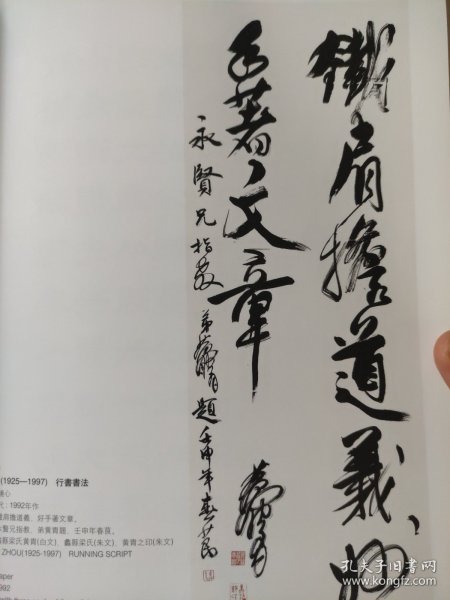 鐵肩擔道義、妙
手著文章
永賢兄指教 弟黃胄題 壬申年春
(1925—1997) 行書書法
心
代：1992年作
肩擔道義、好手著文章。
賢兄指教，弟黄青題，壬申年春茛。
縣梁氏黄青(白文)、蠡縣梁氏(朱文)、黄青之印(朱文)
ZHOU(1925-1997) RUNNING SCRIPT
aper
992
孔夫子旧书网